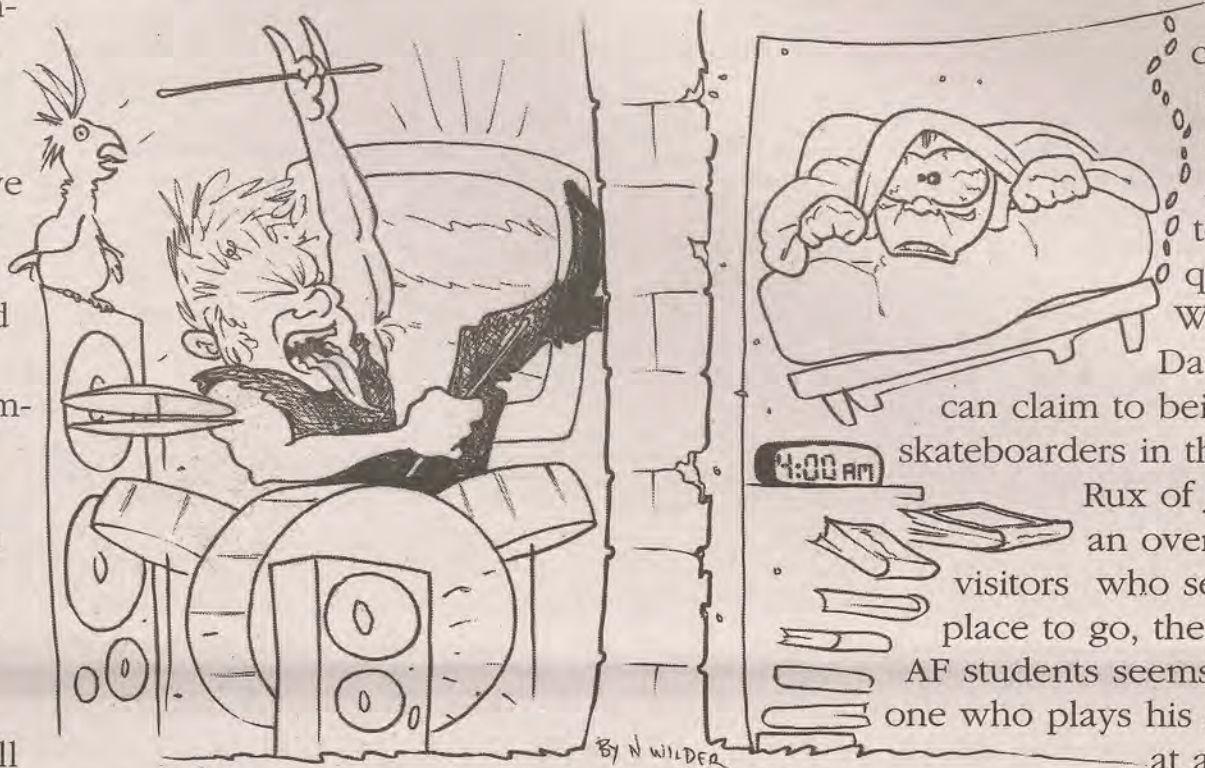 ve
d
m-
ll
4:00 AM
BY N WILDER
can claim to bei
skateboarders in th
Rux of
an over
visitors who se
place to go, the
AF students seems
one who plays his
at a